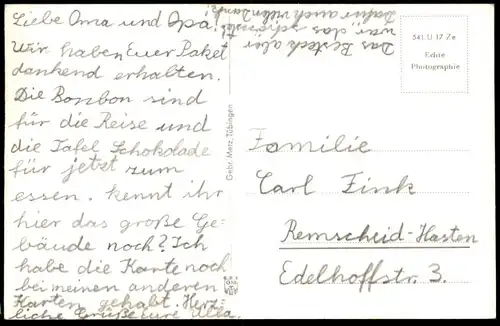 Liebe Oma und Opa!
Wir haben Euer Paket
dankend erhalten.
Die Bonbon sind
für die Reise und
die Tafel Schokolade
für jetzt zum
essen. Kennt ihr
hier das große Ge-
bäude noch? Ich
habe die Karte noch
bei meinen anderen
Karten gehabt. Herz-
liche Grüße eure Ulla.
Das Besteck aber
war das schönste!
Dafür auch vielen Dank!
Gebr. Metz, Tübingen
541 U 17 Ze
Echte
Photographie
Familie
Carl Fink
Remscheid-Hasten
Edelhoffstr. 3.